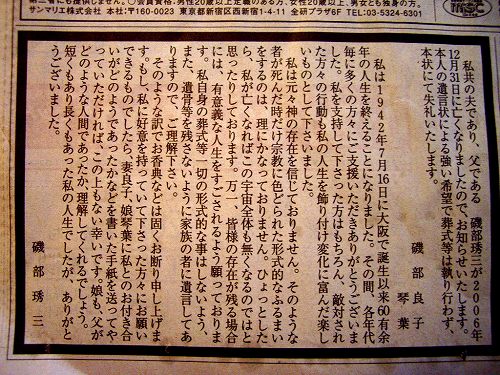 にも提供しません。 ○会員資格:男性20歳以上定職のある方、女性20歳以上、男女とも独身の方。
サンマリエ株式会社 本社/〒160-0023 東京都新宿区西新宿1-4-11 全研プラザ6F TEL/03-5324-6301
私共の夫であり、父である 磯部琇三が2006年
12月31日に亡くなりましたので、お知らせいたします。
本人の遺言状による強い希望で葬式等は執り行わず、
本状にて失礼いたします。
磯部良子
琴葉
私は1942年7月16日に大阪で誕生以来60有余
年の人生を終えることになりました。その間、各年代
毎に多くの方々にご支援いただきありがとうございま
した。私を支持して下さった方はもちろん、敵対され
た方々の行動も私の人生を飾り付け変化に富んだ楽し
いものとして下さいました。
私は元々神の存在を信じておりません。そのような
者が死んだ時だけ宗教に色どられた形式的なふるまい
をするのは、理にかなっておりません。ひょっとした
ら、私が亡くなればこの宇宙全体も無くなるのではと
思ったりしております。万一、皆様の存在が残る場合
には、有意義な人生をすごされるよう願っておりま
す。私自身の葬式等一切の形式的な事はしないよう、
また、遺骨等を残さないように家族の者に遺言してあ
りますので、ご理解下さい。
そのような訳でお香典などは固くお断り申し上げま
す。もし、私に好意を持っていて下さった方々にお願い
できるものでしたら、妻良子、娘琴葉に私とのお付き合
いがどのようであったかなどを書いた手紙を送ってや
っていただければ、この上もない幸いです。娘も、父が
どのような人間であったか、理解してくれるでしょう。
短くもあり長くもあった私の人生でしたが、ありがと
うございました。
磯部琇三